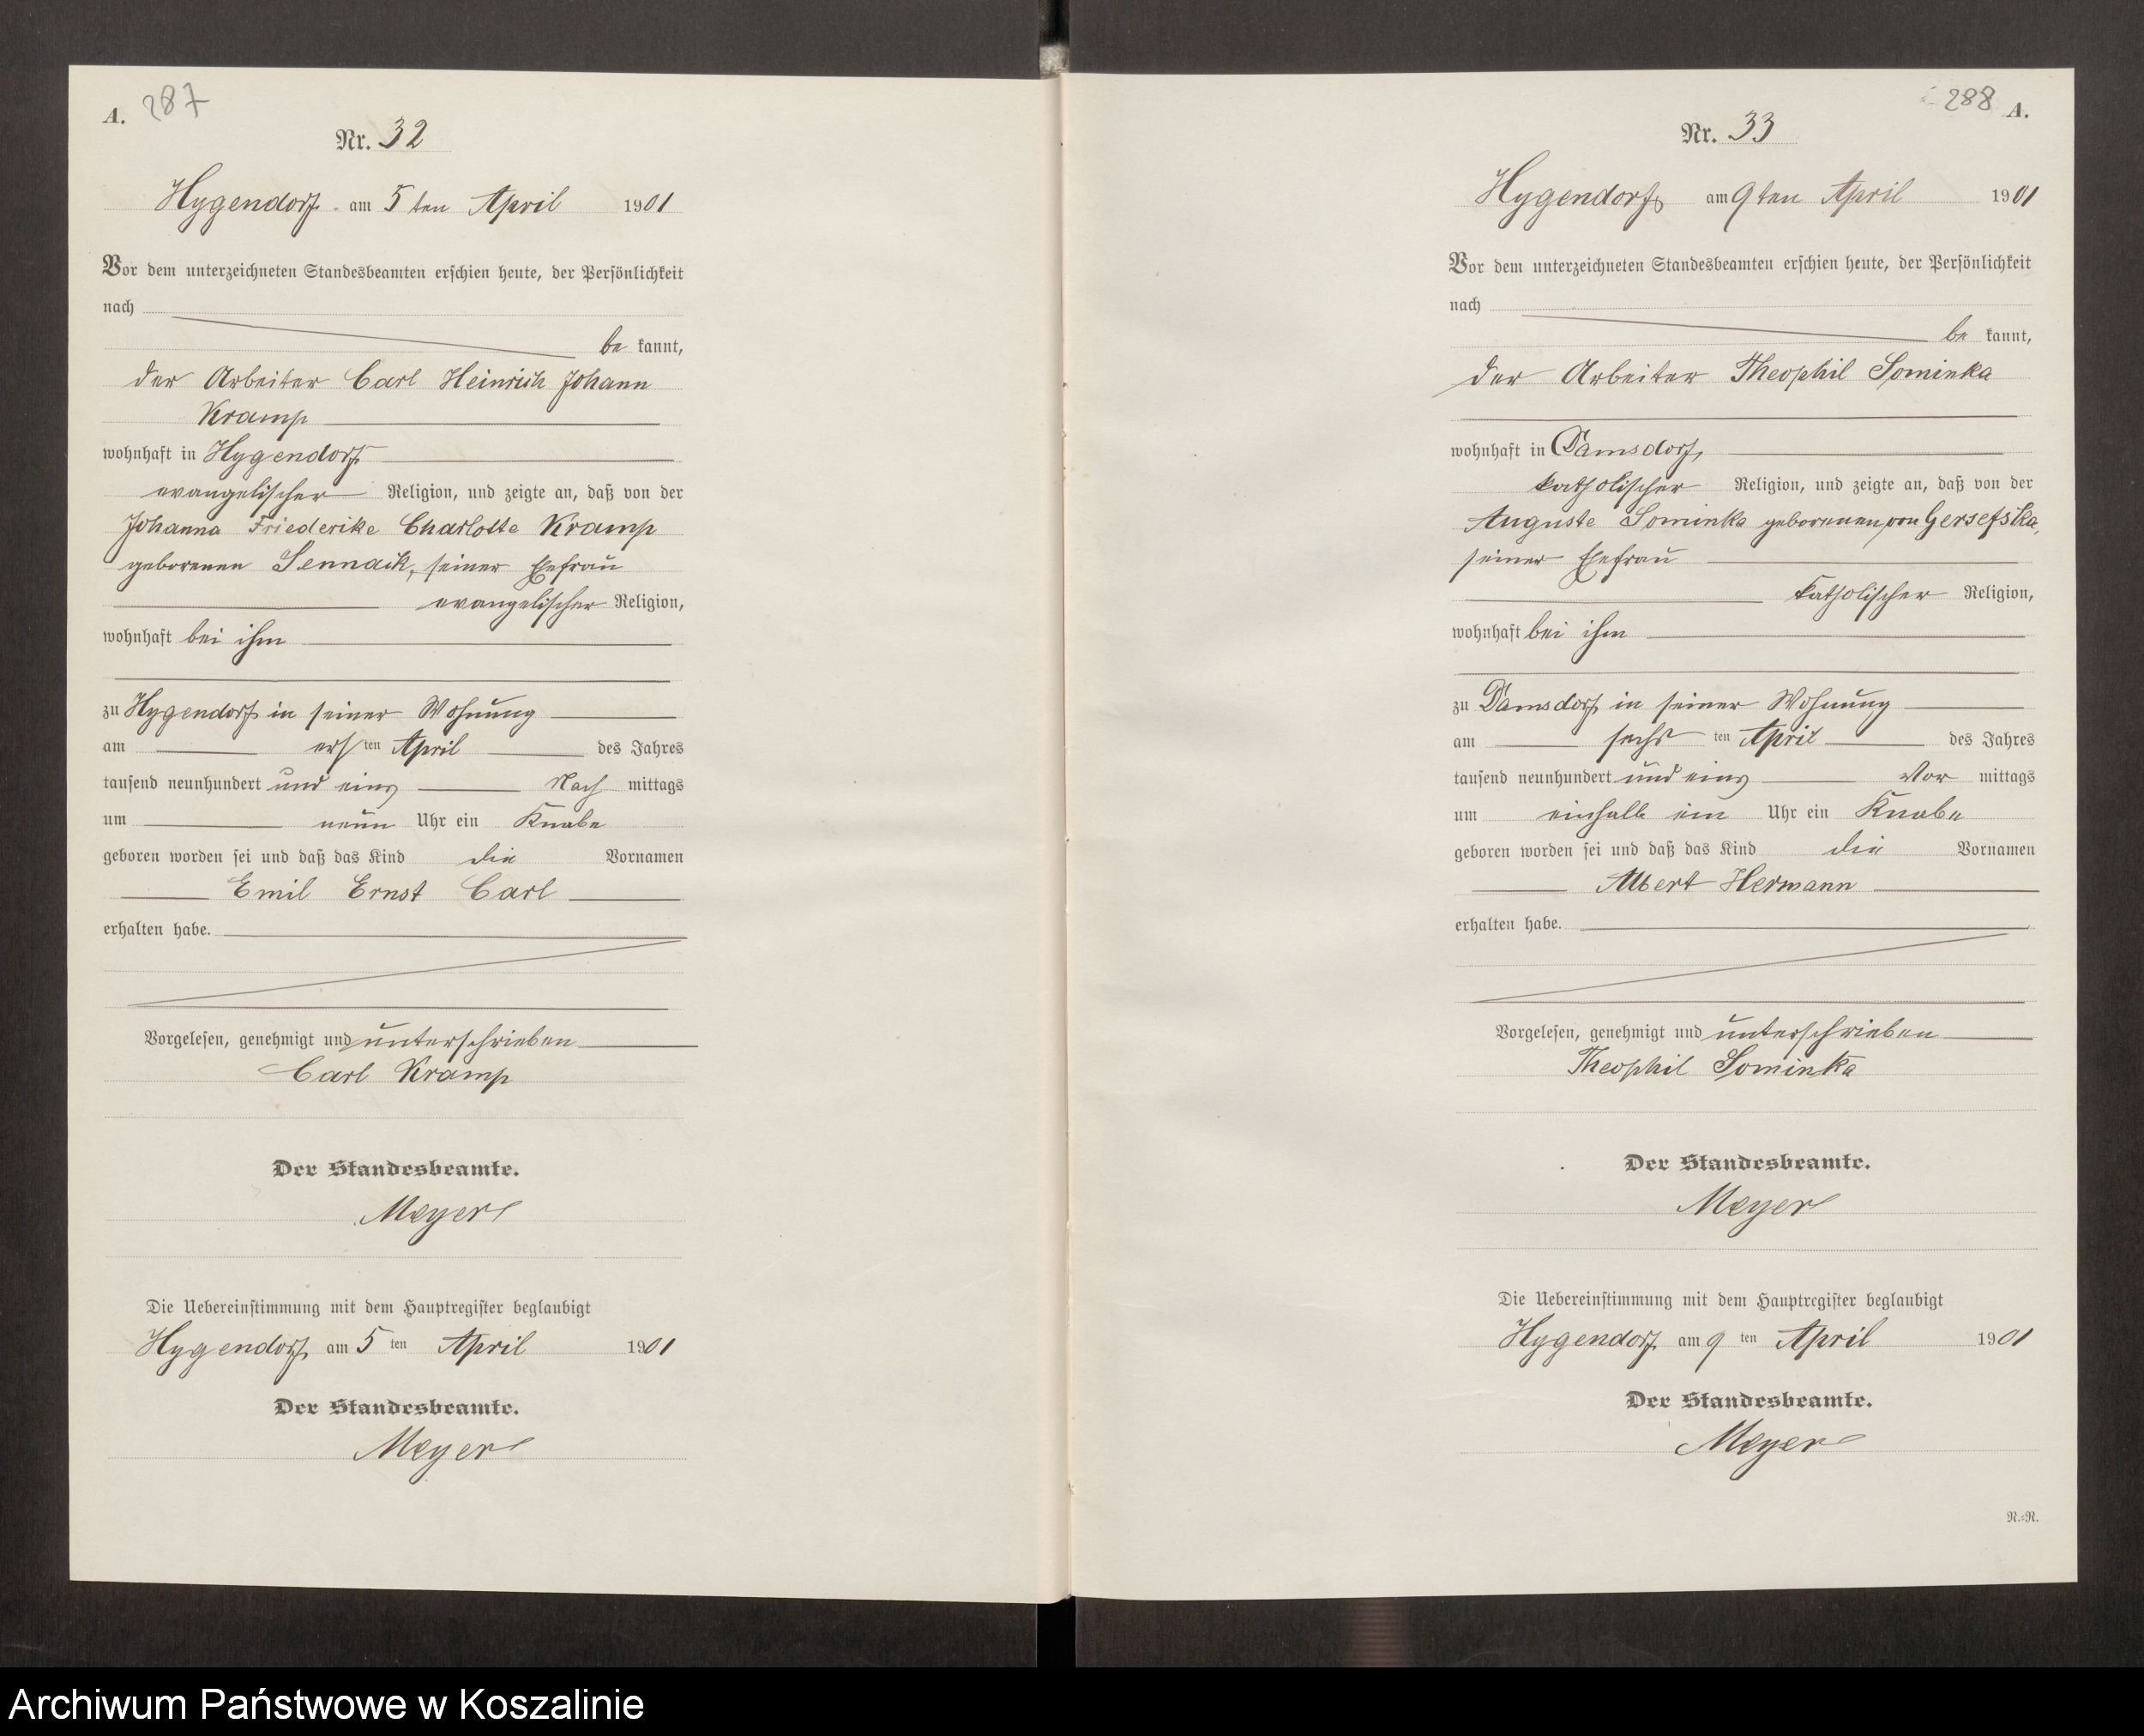 A. 287
Nr. 32
Hygendorf am 5ten April 1901
Vor dem unterzeichneten Standesbeamten erschien heute, der Persönlichkeit
nach
be kannt,
der Arbeiter Carl Heinrich Johann
Kramp
wohnhaft in Hygendorf
evangelischer Religion, und zeigte an, daß von der
Johanna Friederike Charlotte Kramp
geborenen Sennack, seiner Ehefrau
evangelischer Religion,
wohnhaft bei ihm
zu Hygendorf in seiner Wohnung
am ersten April des Jahres
tausend neunhundert und eins Nach mittags
um neun Uhr ein Knabe
geboren worden sei und daß das Kind die Vornamen
Emil Ernst Carl
erhalten habe.
Vorgelesen, genehmigt und unterschrieben
Carl Kramp
Der Standesbeamte.
Meyer
Die Uebereinstimmung mit dem Hauptregister beglaubigt
Hygendorf, am 5 ten April 1901
Der Standesbeamte.
Meyer
288 A.
Nr. 33
Hygendorf am 9ten April 1901
Vor dem unterzeichneten Standesbeamten erschien heute, der Persönlichkeit
nach
be kannt,
der Arbeiter Theophil Sominka
wohnhaft in Damsdorf,
katholischer Religion, und zeigte an, daß von der
Auguste Sominka geborenen von
seiner Ehefrau
katholischer Religion,
wohnhaft bei ihm
zu Damsdorf in seiner Wohnung
am sechsten April des Jahres
tausend neunhundert und eins Vor mittags
um einhalb ein Uhr ein Knabe
geboren worden sei und daß das Kind die Vornamen
Albert Hermann
erhalten habe.
Vorgelesen, genehmigt und unterschrieben
Theophil Sominka
Der Standesbeamte.
Meyer
Die Uebereinstimmung mit dem Hauptregister beglaubigt
Hygendorf, am 9 ten April 1901
Der Standesbeamte.
Meyer
N.-N.
Archiwum Państwowe w Koszalinie